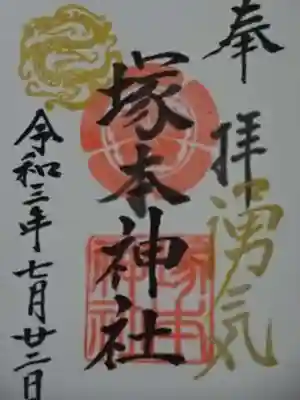 奉拝
湧気
塚本神社
令和三年七月廿二日
塚本
神社